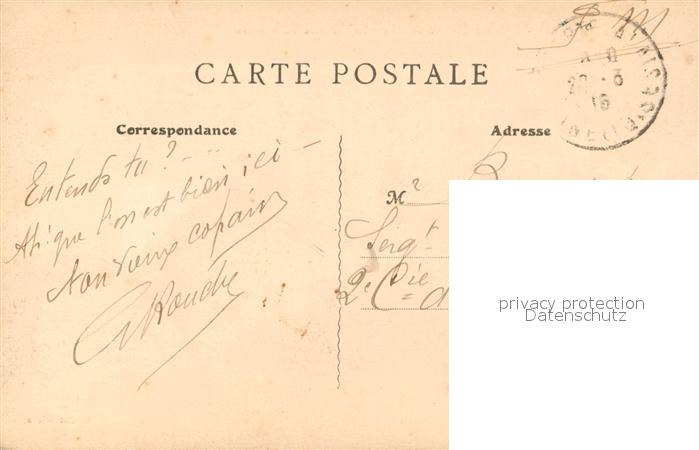 F. M.
CARTE POSTALE
Correspondance
Adresse
Entends tu? - ..
Ah! que l'on est bien ici -
Ton vieux copain
Mr
Sergt
2e Cie d
privacy protection
Datenschutz